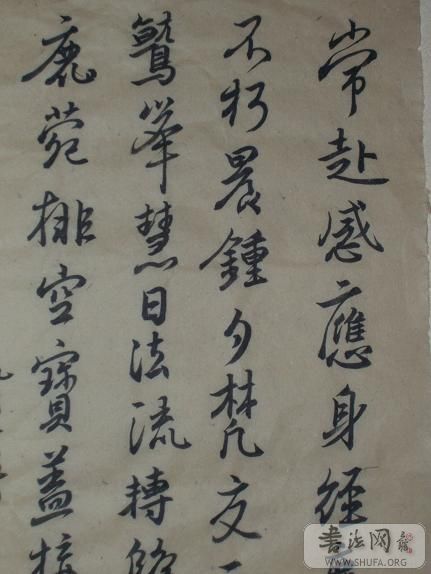 常赴感應身經
不朽晨鍾夕梵交
鷲峯慧日法流轉
鹿菀排空寶蓋接
書法网
WWW.SHUFA.ORG